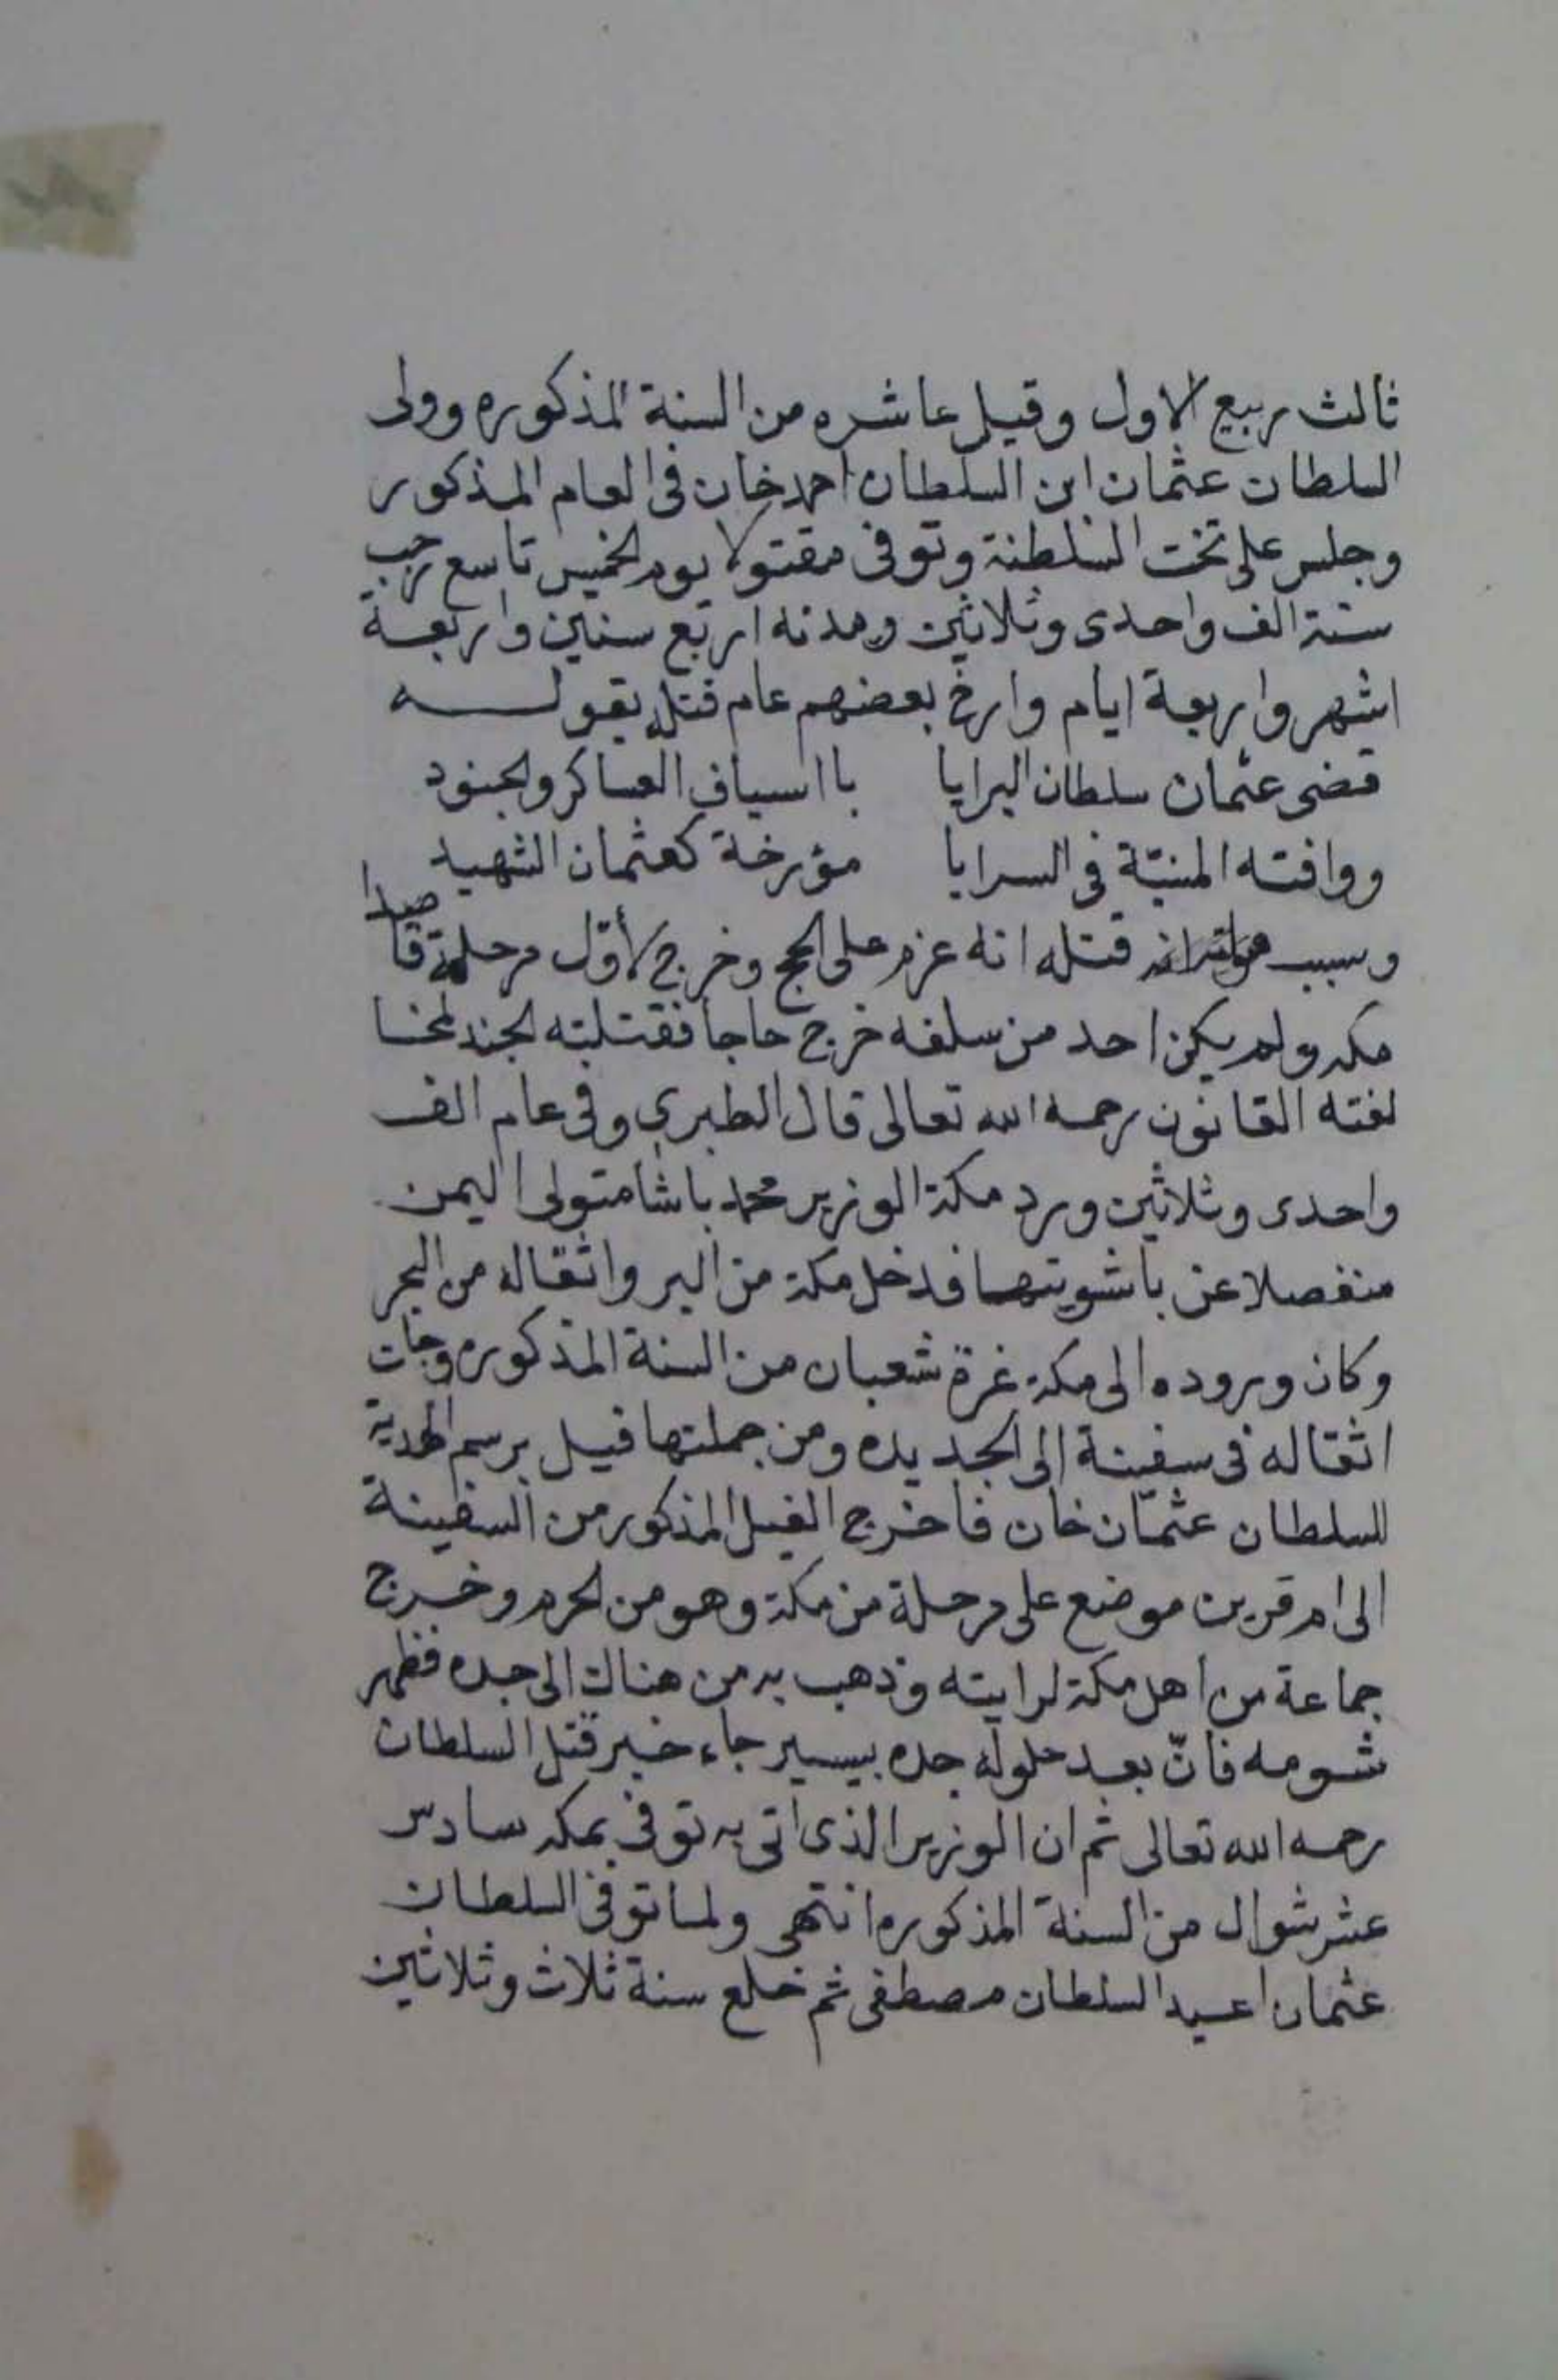 ثالث ربيع الاول وقيل عاشره من السنة المذكوره وولى
السلطان عثمان ابن السلطان احمد خان فى العام المذكور
وجلس على تخت السلطنة وتوفى مقتولا يوم الخميس تاسع رجب
سنة الف واحدى وثلاثين ومدته اربع سنين واربعة
اشهر واربعة ايام وارخ بعضهم عام قتله بقوله
قضى عثمان سلطان البرايا بااسياف العساكر والجنود
ووافته المنيّة فى السرايا مؤرخة كعثمان الشهيد
وسبب قتله انه عزم على الحج وخرج لأوّل مرحلة قاصدا
مكه ولم يكن احد من سلفه خرج حاجا فقتلته الجند لمخا
لفته القانون رحمه الله تعالى قال الطبري وفى عام الف
واحدى وثلاثين ورد مكة الوزير محمد باشا متولى اليمن
منفصلا عن باشويتها فدخل مكة من البر واثقاله من البحر
وكان وروده الى مكة غرة شعبان من السنة المذكوره وجات
اثقاله فى سفينة الى الجديده ومن جملتها فيل برسم الهدية
للسلطان عثمان خان فاخرج الفيل المذكور من السفينة
الى ام قرين موضع على مرحلة من مكة وهو من الحرم وخرج
جماعة من اهل مكة لرايته وذهب به من هناك الى جده فظهر
شومه فانّ بعد حلوله جده بيسير جاء خبر قتل السلطان
رحمه الله تعالى ثم ان الوزير الذى اتى به توفى بمكه سادس
عشر شوال من السنة المذكوره انتهى ولما توفى السلطان
عثمان اعيد السلطان مصطفى ثم خلع سنة ثلاث وثلاثين